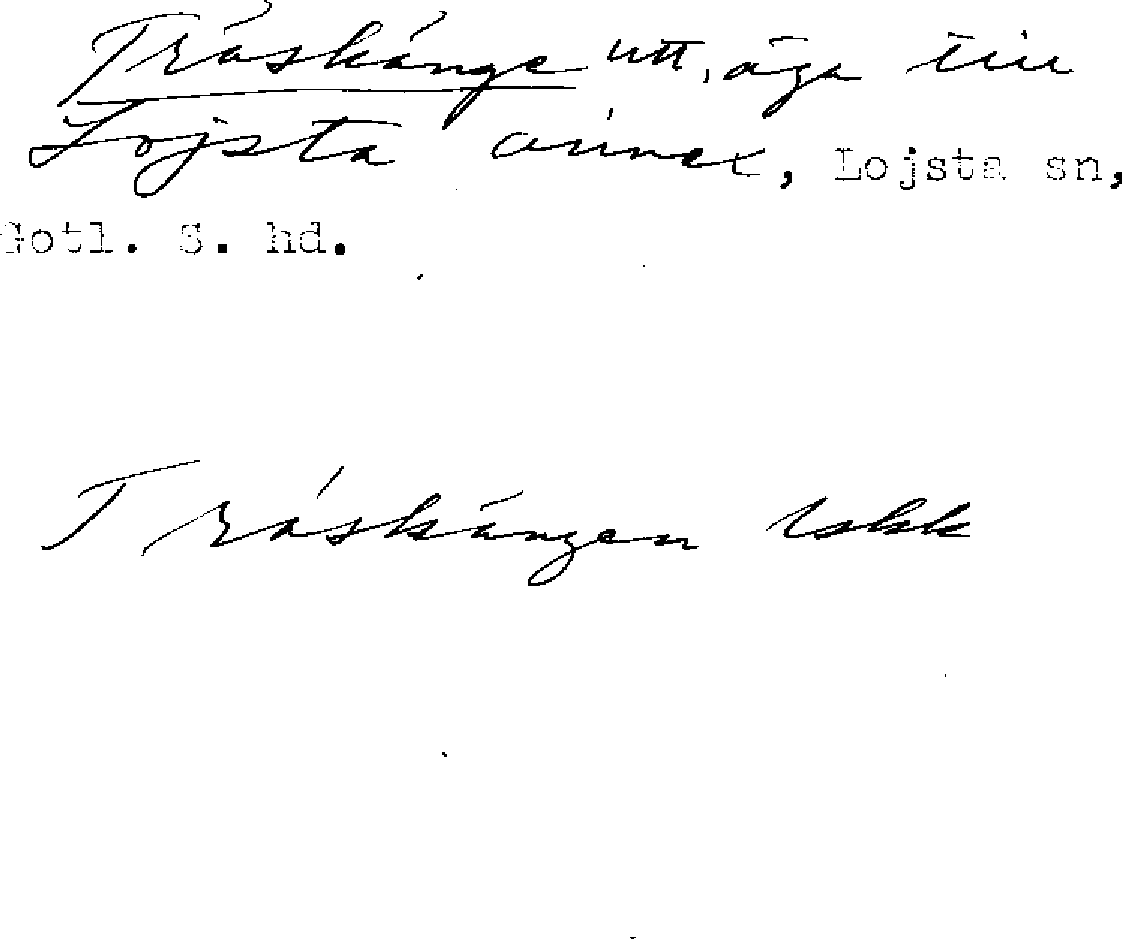 Träskänge utt. äga till
Lojsta annex, Lojsta sn,
Gotl. S. hd.
Träskängen